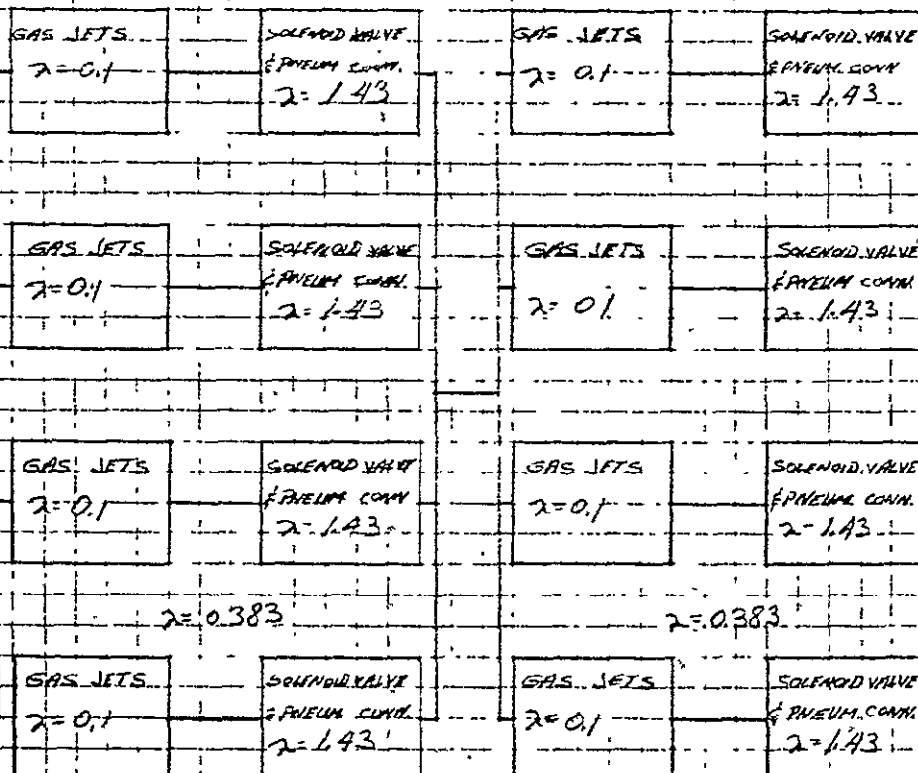 GAS JETS
λ=0.1
SOLENOID VALVE
& PNEUM. CONN.
λ= 1.43
GAS JETS
λ= 0.1
SOLENOID VALVE
& PNEUM. CONN
λ= 1.43
GAS JETS
λ=0.1
SOLENOID VALVE
& PNEUM CONN.
λ= 1.43
GAS JETS
λ= 0.1
SOLENOID VALVE
& PNEUM CONN.
λ= 1.43
GAS JETS
λ=0.1
SOLENOID VALVE
& PNEUM CONN
λ= 1.43
GAS JETS
λ=0.1
SOLENOID VALVE
& PNEUM. CONN.
λ= 1.43
λ= 0.383
λ= 0.383
GAS JETS
λ=0.1
SOLENOID VALVE
& PNEUM CONN.
λ= 1.43
GAS JETS
λ=0.1
SOLENOID VALVE
& PNEUM. CONN.
λ= 1.43